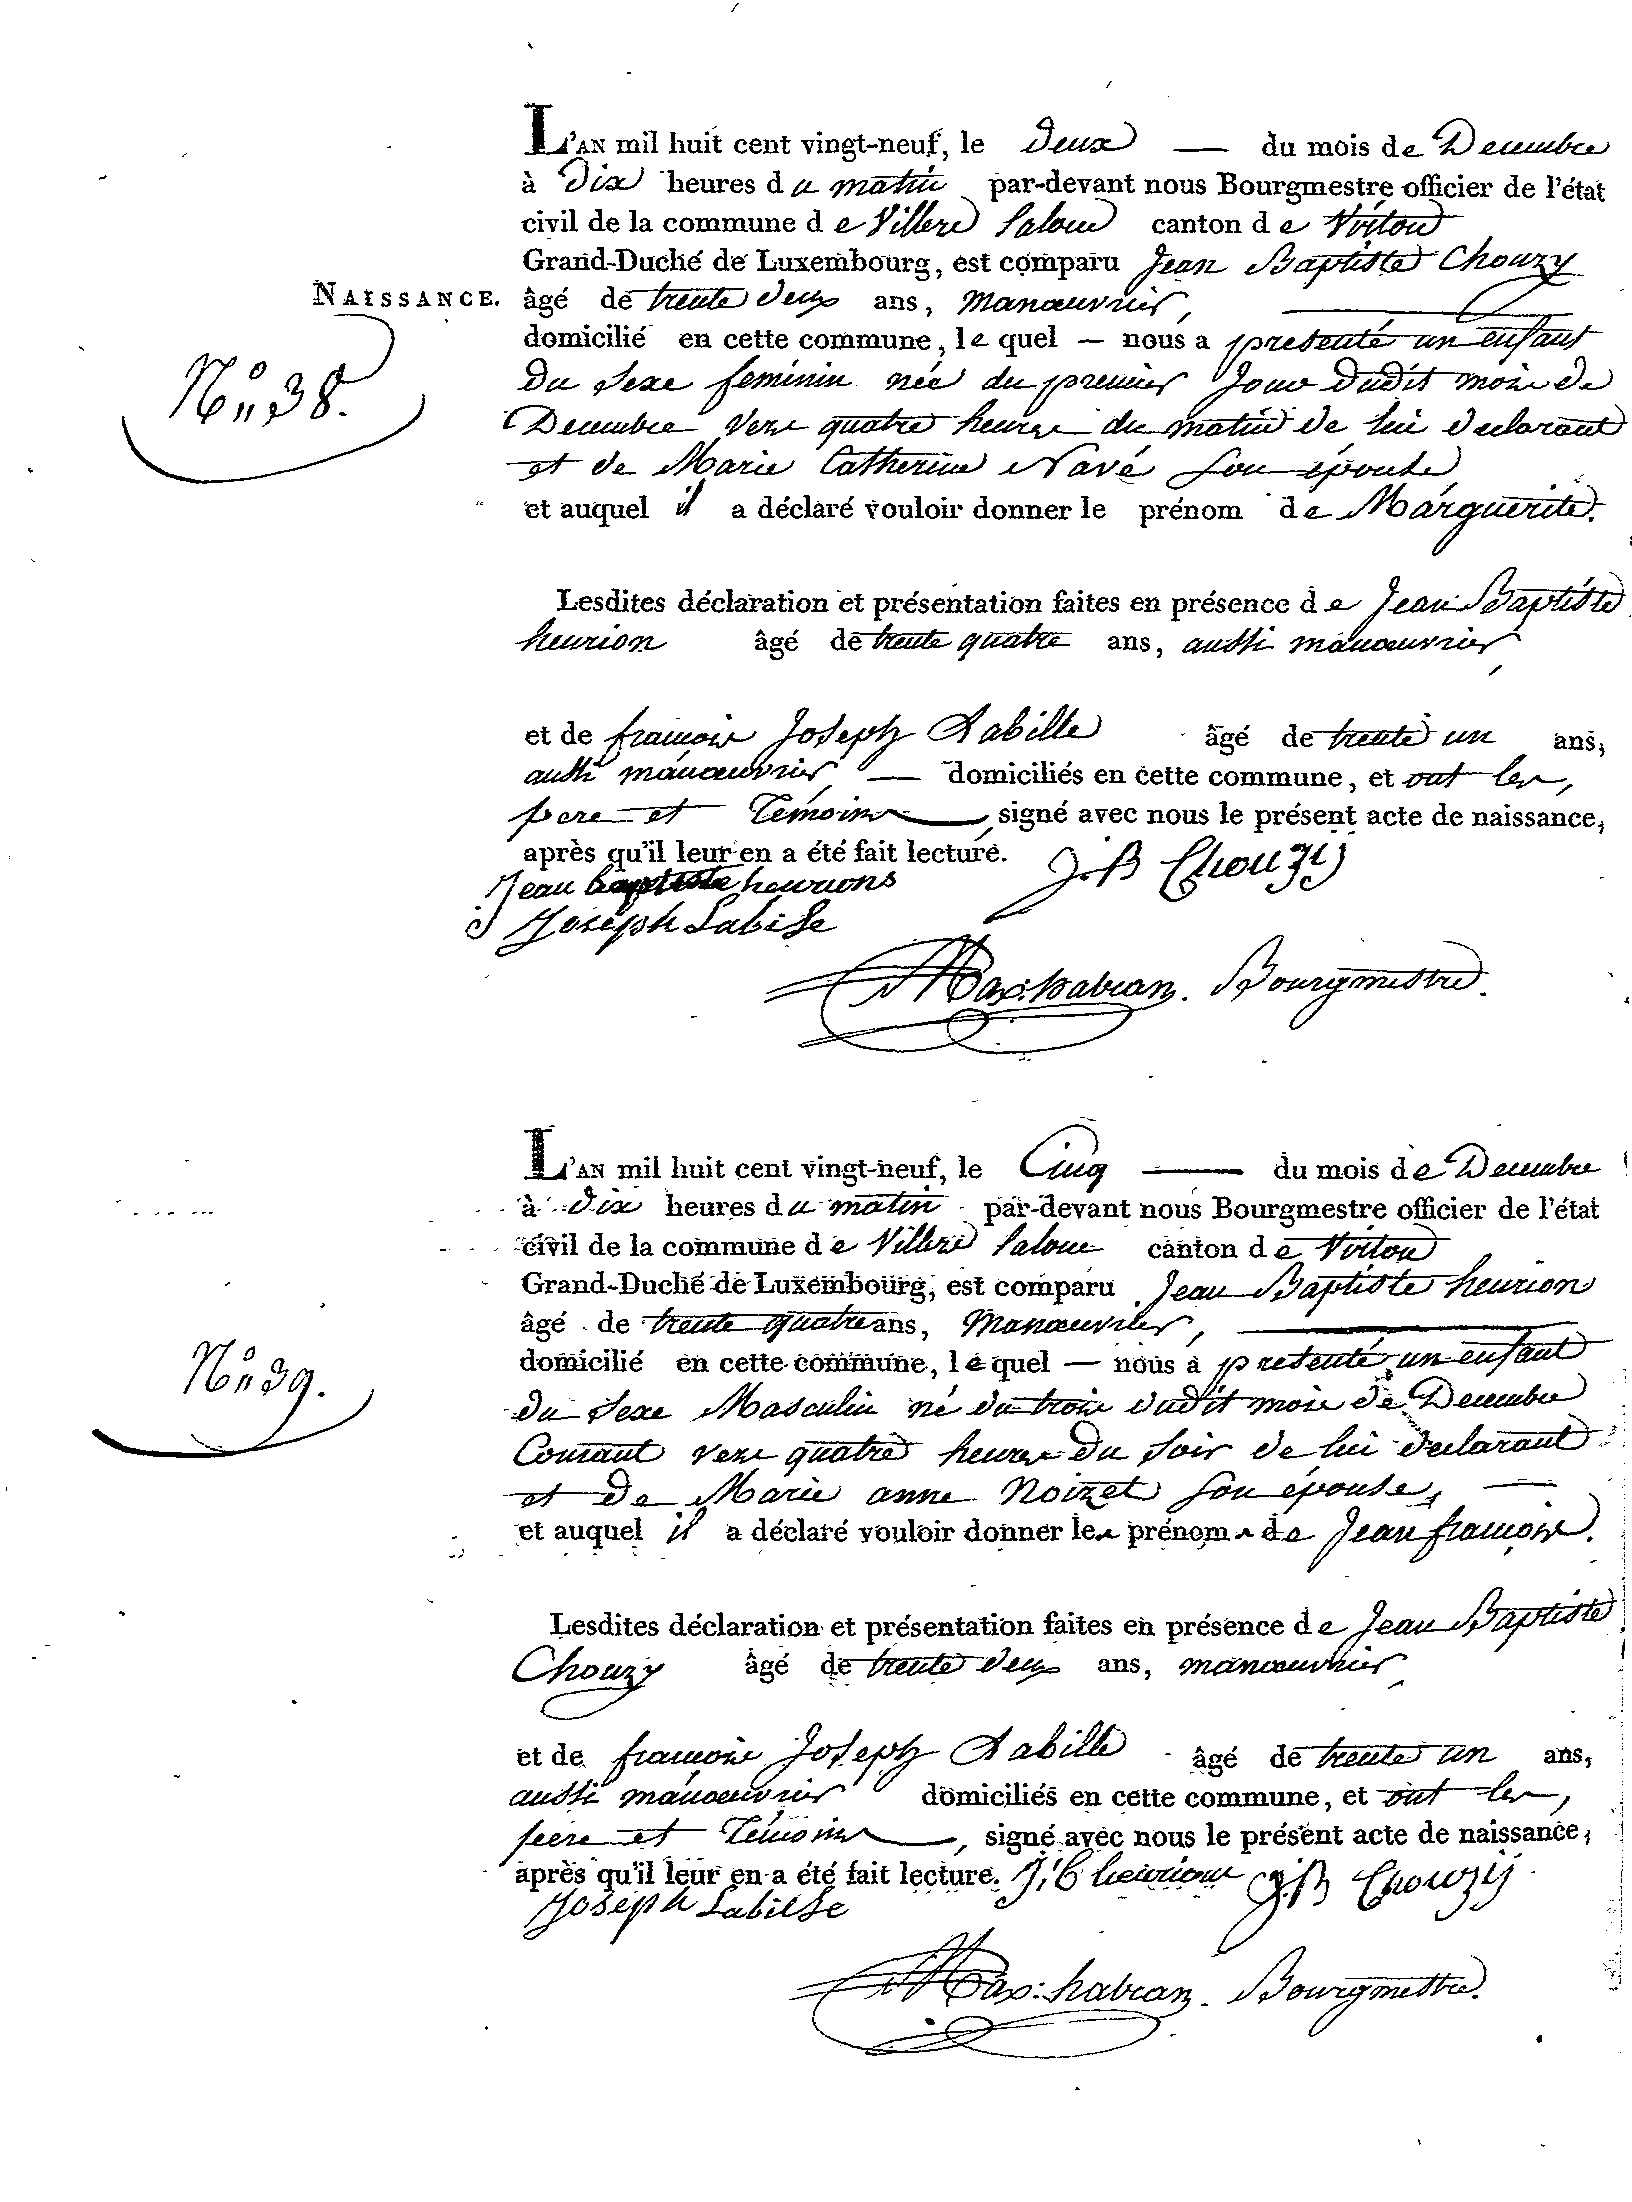 L'AN mil huit cent vingt-neuf, le Deux — du mois de Decembre
à Dix heures du matin par-devant nous Bourgmestre officier de l'état
civil de la commune de Villers Laloue canton de Virton
Grand-Duché de Luxembourg, est comparu Jean Baptiste Chouzy
NAISSANCE. âgé de trente deux ans, manœuvrier,
domicilié en cette commune, le quel — nous a presenté un enfant
N° 38.
du sexe feminin née du premier Jour dudit mois de
Decembre vers quatre heures du matin de lui declarant
et de Marie Catherine Navé son épouse
et auquel il a déclaré vouloir donner le prénom de Marguerite.
Lesdites déclaration et présentation faites en présence de Jean Baptiste
henrion âgé de trente quatre ans, aussi manœuvrier
et de françois Joseph Labille âgé de trente un ans,
aussi manœuvrier, — domiciliés en cette commune, et ont les,
pere et Témoins — signé avec nous le présent acte de naissance,
après qu'il leur en a été fait lecture. J.B Chouzij
Jean baptiste henrions
Joseph Labille
Max: habran. Bourgmestre.
L'AN mil huit cent vingt-neuf, le Cinq — du mois de Decembre
à dix heures du matin par-devant nous Bourgmestre officier de l'état
civil de la commune de Villers Laloue canton de Virton
Grand-Duché de Luxembourg, est comparu Jean Baptiste henrion
âgé de trente quatre ans, Manœuvrier,
N° 39.
domicilié en cette commune, le quel — nous a presenté un enfant
du sexe Masculin né du trois dudit mois de Decembre
Courant vers quatre heures du soir de lui declarant
et de Marie anne Noizet son épouse, —
et auquel il a déclaré vouloir donner les prénoms de Jean françois.
Lesdites déclaration et présentation faites en présence de Jean Baptiste
Chouzy âgé de trente deux ans, manœuvrier
et de françois Joseph Labille âgé de trente un ans,
aussi manœuvrier domiciliés en cette commune, et ont les,
peere et Témoins —, signé avec nous le présent acte de naissance,
après qu'il leur en a été fait lecture. J:b henrion J.B Chouzij
Joseph Labille
Max: habran. Bourgmestre.